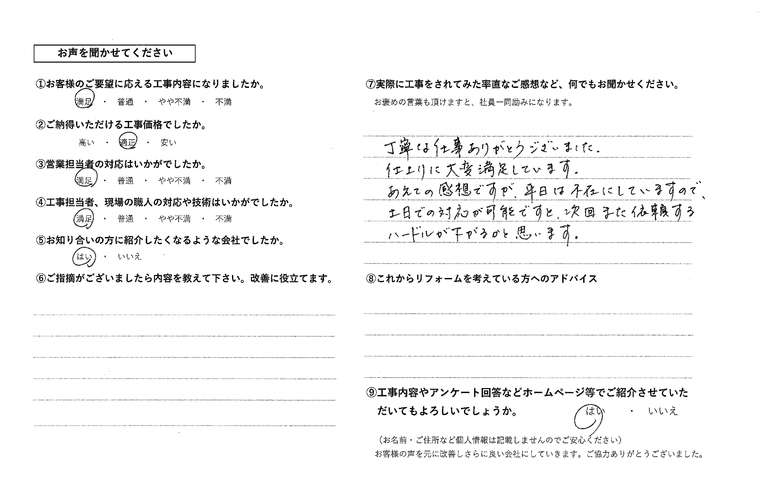 お声を聞かせてください
①お客様のご要望に応える工事内容になりましたか。
満足 ・ 普通 ・ やや不満 ・ 不満
②ご納得いただける工事価格でしたか。
高い ・ 適正 ・ 安い
③営業担当者の対応はいかがでしたか。
満足 ・ 普通 ・ やや不満 ・ 不満
④工事担当者、現場の職人の対応や技術はいかがでしたか。
満足 ・ 普通 ・ やや不満 ・ 不満
⑤お知り合いの方に紹介したくなるような会社でしたか。
はい ・ いいえ
⑥ご指摘がございましたら内容を教えて下さい。改善に役立てます。
⑦実際に工事をされてみた率直なご感想など、何でもお聞かせください。
お褒めの言葉も頂けますと、社員一同励みになります。
丁寧な仕事ありがとうございました。
仕上りに大変満足しています。
あえての感想ですが、平日は不在にしていますので、
土日での対応が可能ですと、次回また依頼する
ハードルが下がるかと思います。
⑧これからリフォームを考えている方へのアドバイス
⑨工事内容やアンケート回答などホームページ等でご紹介させていた
だいてもよろしいでしょうか。
はい ・ いいえ
（お名前・ご住所など個人情報は記載しませんのでご安心ください）
お客様の声を元に改善しさらに良い会社にしていきます。ご協力ありがとうございました。